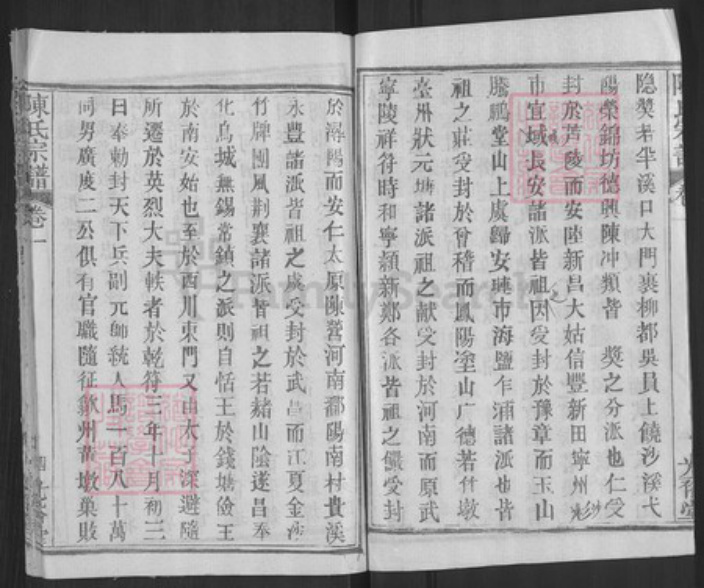 隐獎若平溪口大門裏柳都吳員上饒沙溪弋
陽榮錦坊德興陳冲類皆獎之分派也仁受
封於芦陵而安陸新昌大姑信豐新田寧州
市宜城長安諸派皆祖因受封於豫章而玉山
騰鵬堂山上虞歸安連市海鹽乍浦諸派也皆
祖之莊受封於會稽而鳳陽塗山广德若什墩
臺州狀元塘諸派祖之献受封於河南而原武
寧陵祥符時和寧頴新鄭各派皆祖之儼受封
陳氏宗譜
卷一
於潯陽而安仁太原陳營河南鄱陽南村貴溪
永豐諸派皆祖之處受封於武昌而江夏金沙
竹牌團風荆襄諸派皆祖之若赭山陰遂昌奉
化烏城無錫常鎮之派則自恬王於錢塘儉王
於南安始也至於西川東門又由太子深避隨
所遷於英烈大夫軼者於乾符三年十月初三
日奉勅封天下兵副元帥統人馬一百八十萬
同男廣度二公俱有官職隨征歙州黄墩巢敗
FamilySearch